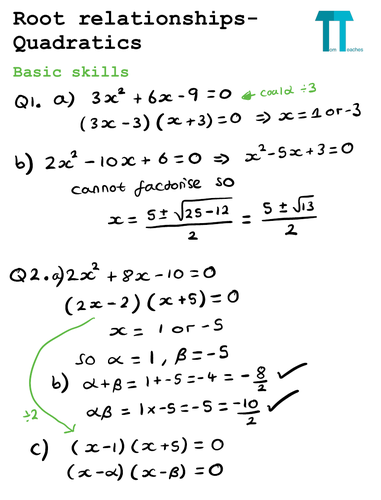 Root relationships-
Quadratics
Tom
Teaches
Basic skills
Q1. a) 3x² + 6x - 9 = 0 ← could ÷3
(3x - 3)(x + 3) = 0 ⇒ x = 1 or -3
b) 2x² - 10x + 6 = 0 ⇒ x² - 5x + 3 = 0
cannot factorise so
x = (5 ± √(25 - 12))/2 = (5 ± √13)/2
Q2. a) 2x² + 8x - 10 = 0
(2x - 2)(x + 5) = 0
x = 1 or -5
so α = 1, β = -5
b) α + β = 1 + -5 = -4 = -8/2 ✓
αβ = 1 x -5 = -5 = -10/2 ✓
÷2
c) (x - 1)(x + 5) = 0
(x - α)(x - β) = 0